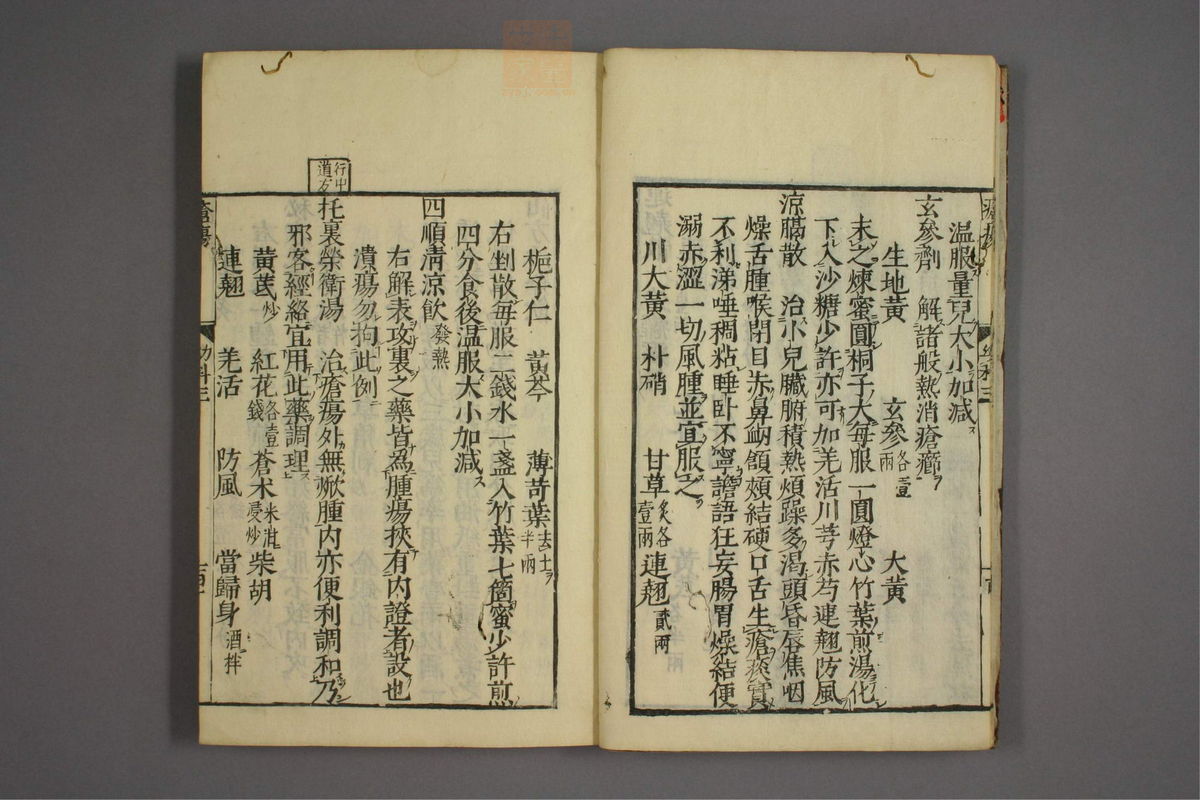 温服量兒大小加減
玄參劑 解諸般熱消瘡癤
生地黄 玄參各壹兩 大黄
末之煉蜜圓桐子大每服一圓燈心竹葉煎湯化
下入沙糖少許亦可加羌活川芎赤芍連翹防風
涼膈散 治小兒臟腑積熱煩躁多渴頭昏唇焦咽
燥舌腫喉閉目赤鼻衄頷頰結硬口舌生瘡痰實
不利涕唾稠粘睡卧不寧譫語狂妄腸胃燥結便
溺赤澀一切風腫並宜服之
川大黄 朴硝 甘草炙各壹兩 連翹貳兩
梔子仁 黄芩 薄苛葉去土半兩
右剉散毎服二錢水一盞入竹葉七箇蜜少許煎
四分食後温服大小加減
四順清涼飲發熱
右解表攻裏之藥皆為腫瘍挾有内證者設也
潰瘍勿拘此例
行中道友
托裏榮衛湯 治瘡瘍外無焮腫内亦便利調和乃
邪客經絡宜用此藥調理
黄茋炒 紅花各壹錢 蒼术米泔浸炒 柴胡
連翹 羌活 防風 當歸身酒拌
瘡瘍
幼科三